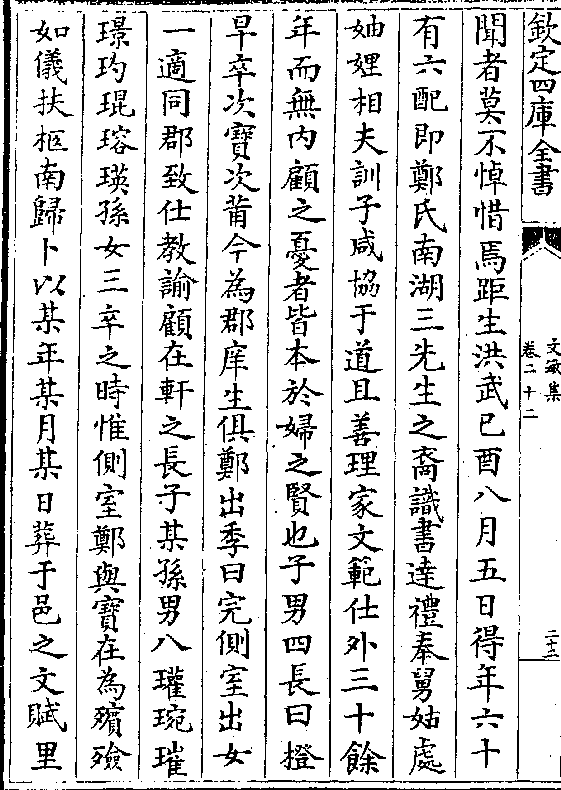 欽定四庫全書
文敏集
卷二十二
二十三
聞者莫不悼惜焉距生洪武己酉八月五日得年六十
有六配即鄭氏南湖三先生之裔識書達禮奉舅姑處
妯娌相夫訓子咸協于道且善理家文範仕外三十餘
年而無内顧之憂者皆本於婦之賢也子男四長曰橙
早卒次寶次莆今為郡庠生俱鄭出季曰完側室出女
一適同郡致仕教諭顧在軒之長子某孫男八瓘琬璀
璟玓琨瑢瑛孫女三卒之時惟側室鄭與寶在為殯殮
如儀扶柩南歸卜以某年某月某日葬于邑之文賦里